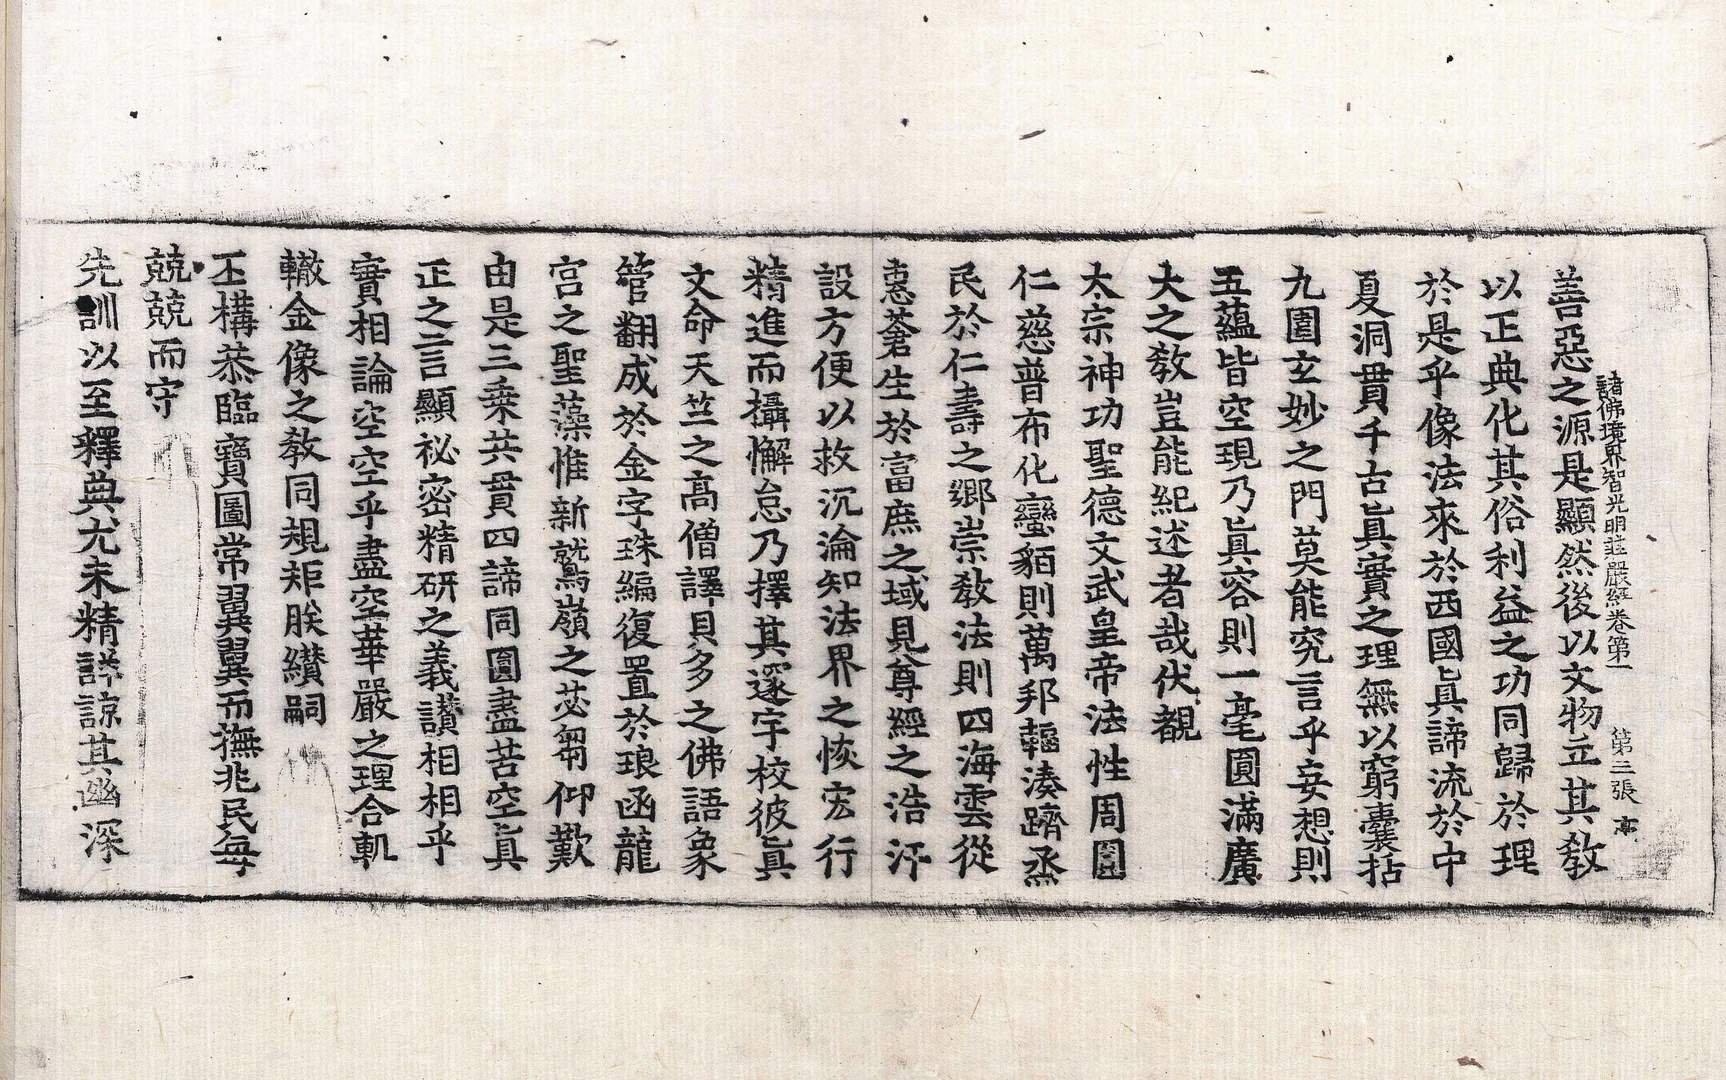 諸佛境界智光明莊嚴經卷第一　第三張　亭
善惡之源是顯然後以文物立其敎
以正典化其俗利益之功同歸於理
於是乎像法來於西國眞諦流於中
夏洞貫千古眞實之理無以窮囊括
九圍玄妙之門莫能究言乎妄想則
五蘊皆空現乃眞容則一毫圓滿廣
大之敎豈能紀述者哉伏覩
太宗神功聖德文武皇帝法性周圓
仁慈普布化蠻貊則萬邦輻湊躋烝
民於仁壽之鄉崇敎法則四海雲從
惠蒼生於富庶之域見尊經之浩汗
設方便以救沉淪知法界之恢宏行
精進而攝懈怠乃擇其邃宇校彼眞
文命天竺之高僧譯貝多之佛語象
管翻成於金字珠編復置於琅函龍
宮之聖藻惟新鷲嶺之苾蒭仰歎
由是三乘共貫四諦同圓盡苦空眞
正之言顯祕密精研之義讚相相乎
實相論空空乎盡空華嚴之理合軌
轍金像之敎同規矩朕纘嗣
丕構恭臨寶圖常翼翼而撫兆民每
兢兢而守
先訓以至釋典尤未精詳諒其幽深